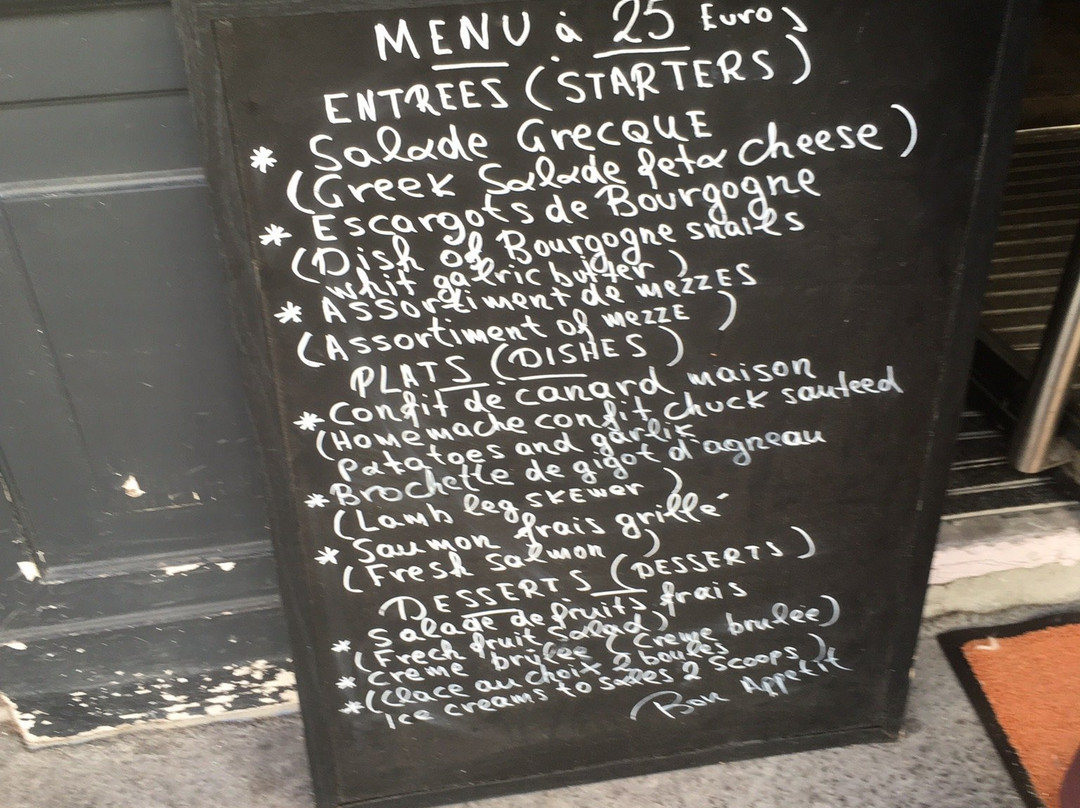 MENU à 25 Euro
ENTREES (STARTERS)
* Salade GrecQUE
(Greek Salade feta cheese)
* Escargots de Bourgogne
(Dish of Bourgogne snails
whit galric butter)
* Assortiment de mezzes
(Assortiment of mezze)
PLATS (DISHES)
* confit de canard maison
(Homemache confit chuck sauteed
patatoes and garlik
* Brochette de gigot d'agneau
(Lamb leg skewer)
* Saumon frais grillé
(Fresh salmon)
DESSERTS (DESSERTS)
* Salade de fruits frais
(Frech fruit salad)
* creme brûlée (creme brulee)
* (Clace au choix 2 boules
Ice creams to sales 2 scoops)
Bon Appetit